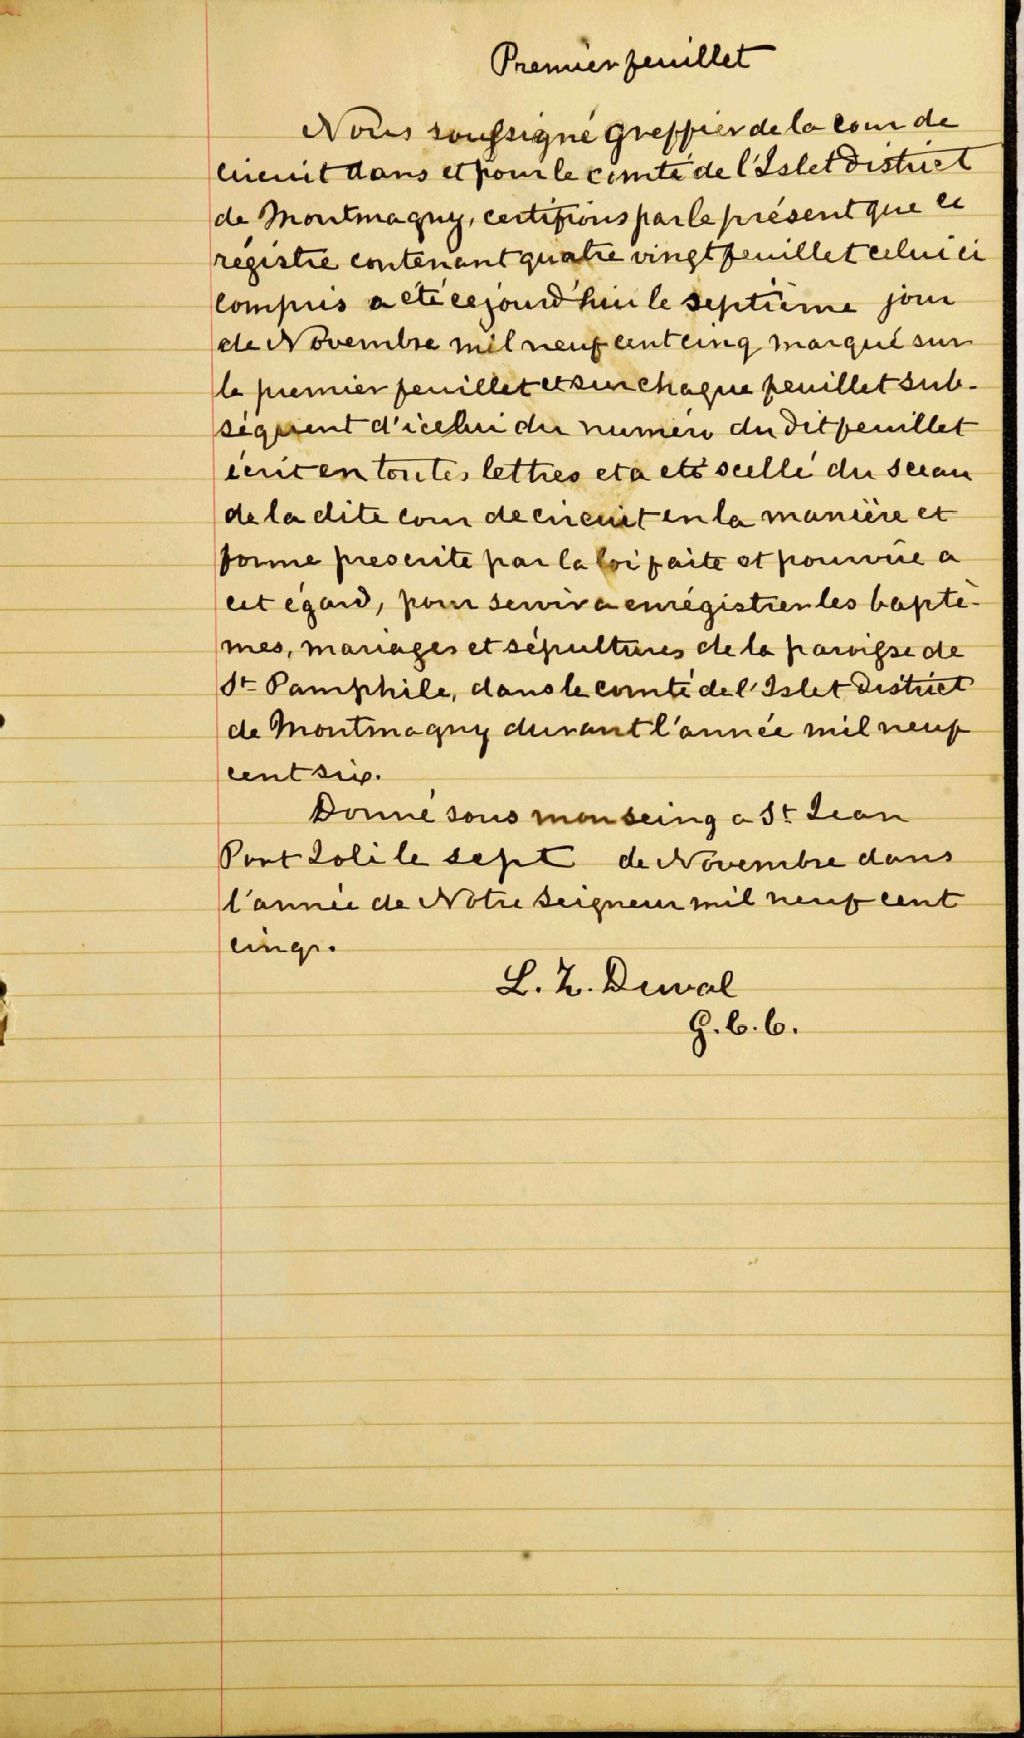 Premier feuillet
Nous soussigné Greffier de la cour de
circuit dans et pour le comté de l'Islet District
de Montmagny, certifions par le présent que ce
régistre contenant quatre vingt feuillet celui ci
compris a été cejourd'hui le septième jour
de Novembre mil neuf cent cinq marqué sur
le premier feuillet et sur chaque feuillet sub-
séquent d'icelui du numéro du dit feuillet
écrit en toutes lettres et a été scellé du sceau
de la dite cour de circuit en la manière et
forme prescrite par la loi faite et pourvue a
cet égard, pour servir a enrégistrer les baptê-
mes, mariages et sépultures de la paroisse de
St Pamphile, dans le comté de l'Islet District
de Montmagny durant l'année mil neuf
cent six.
Donné sous mon seing a St Jean
Port Joli le sept de Novembre dans
l'année de Notre Seigneur mil neuf cent
cinq.
L. Z. Duval
G. C. C.